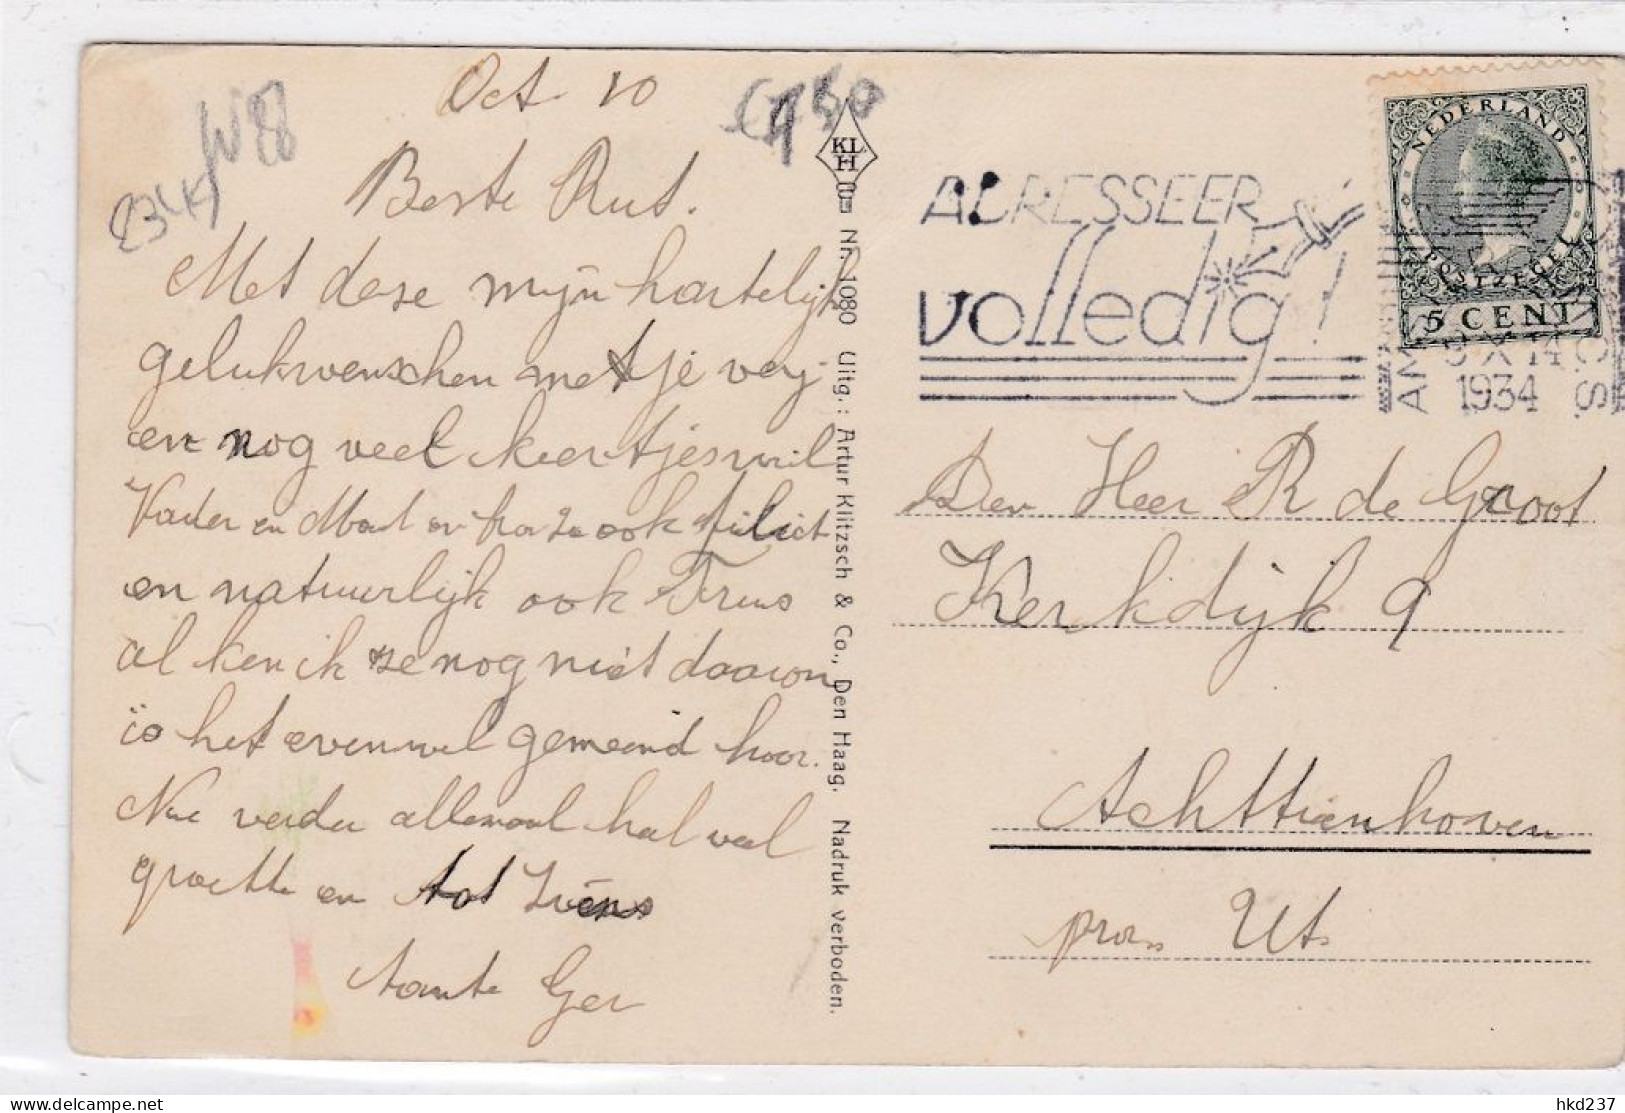 Oct 10
Beste Rut.
Met deze mijn hartelijk
gelukwenschen met je verj
en nog veel keertjes wil
Vader en ook
en natuurlijk ook Truus
al ken ik ze nog niet daarom
is het evenwel gemeend hoor.
Nu verder allemaal heel veel
groette en tot ziens
tante Ger
KLH
Nr. 1080 Uitg.: Artur Klitzsch & Co., Den Haag. Nadruk verboden.
ADRESSEER
volledig!
NEDERLAND
POSTZEGEL
5 CENT
1934
Den Heer R de Groot
Kerkdijk 9
Achttienhoven
prov. Ut.
hkd237